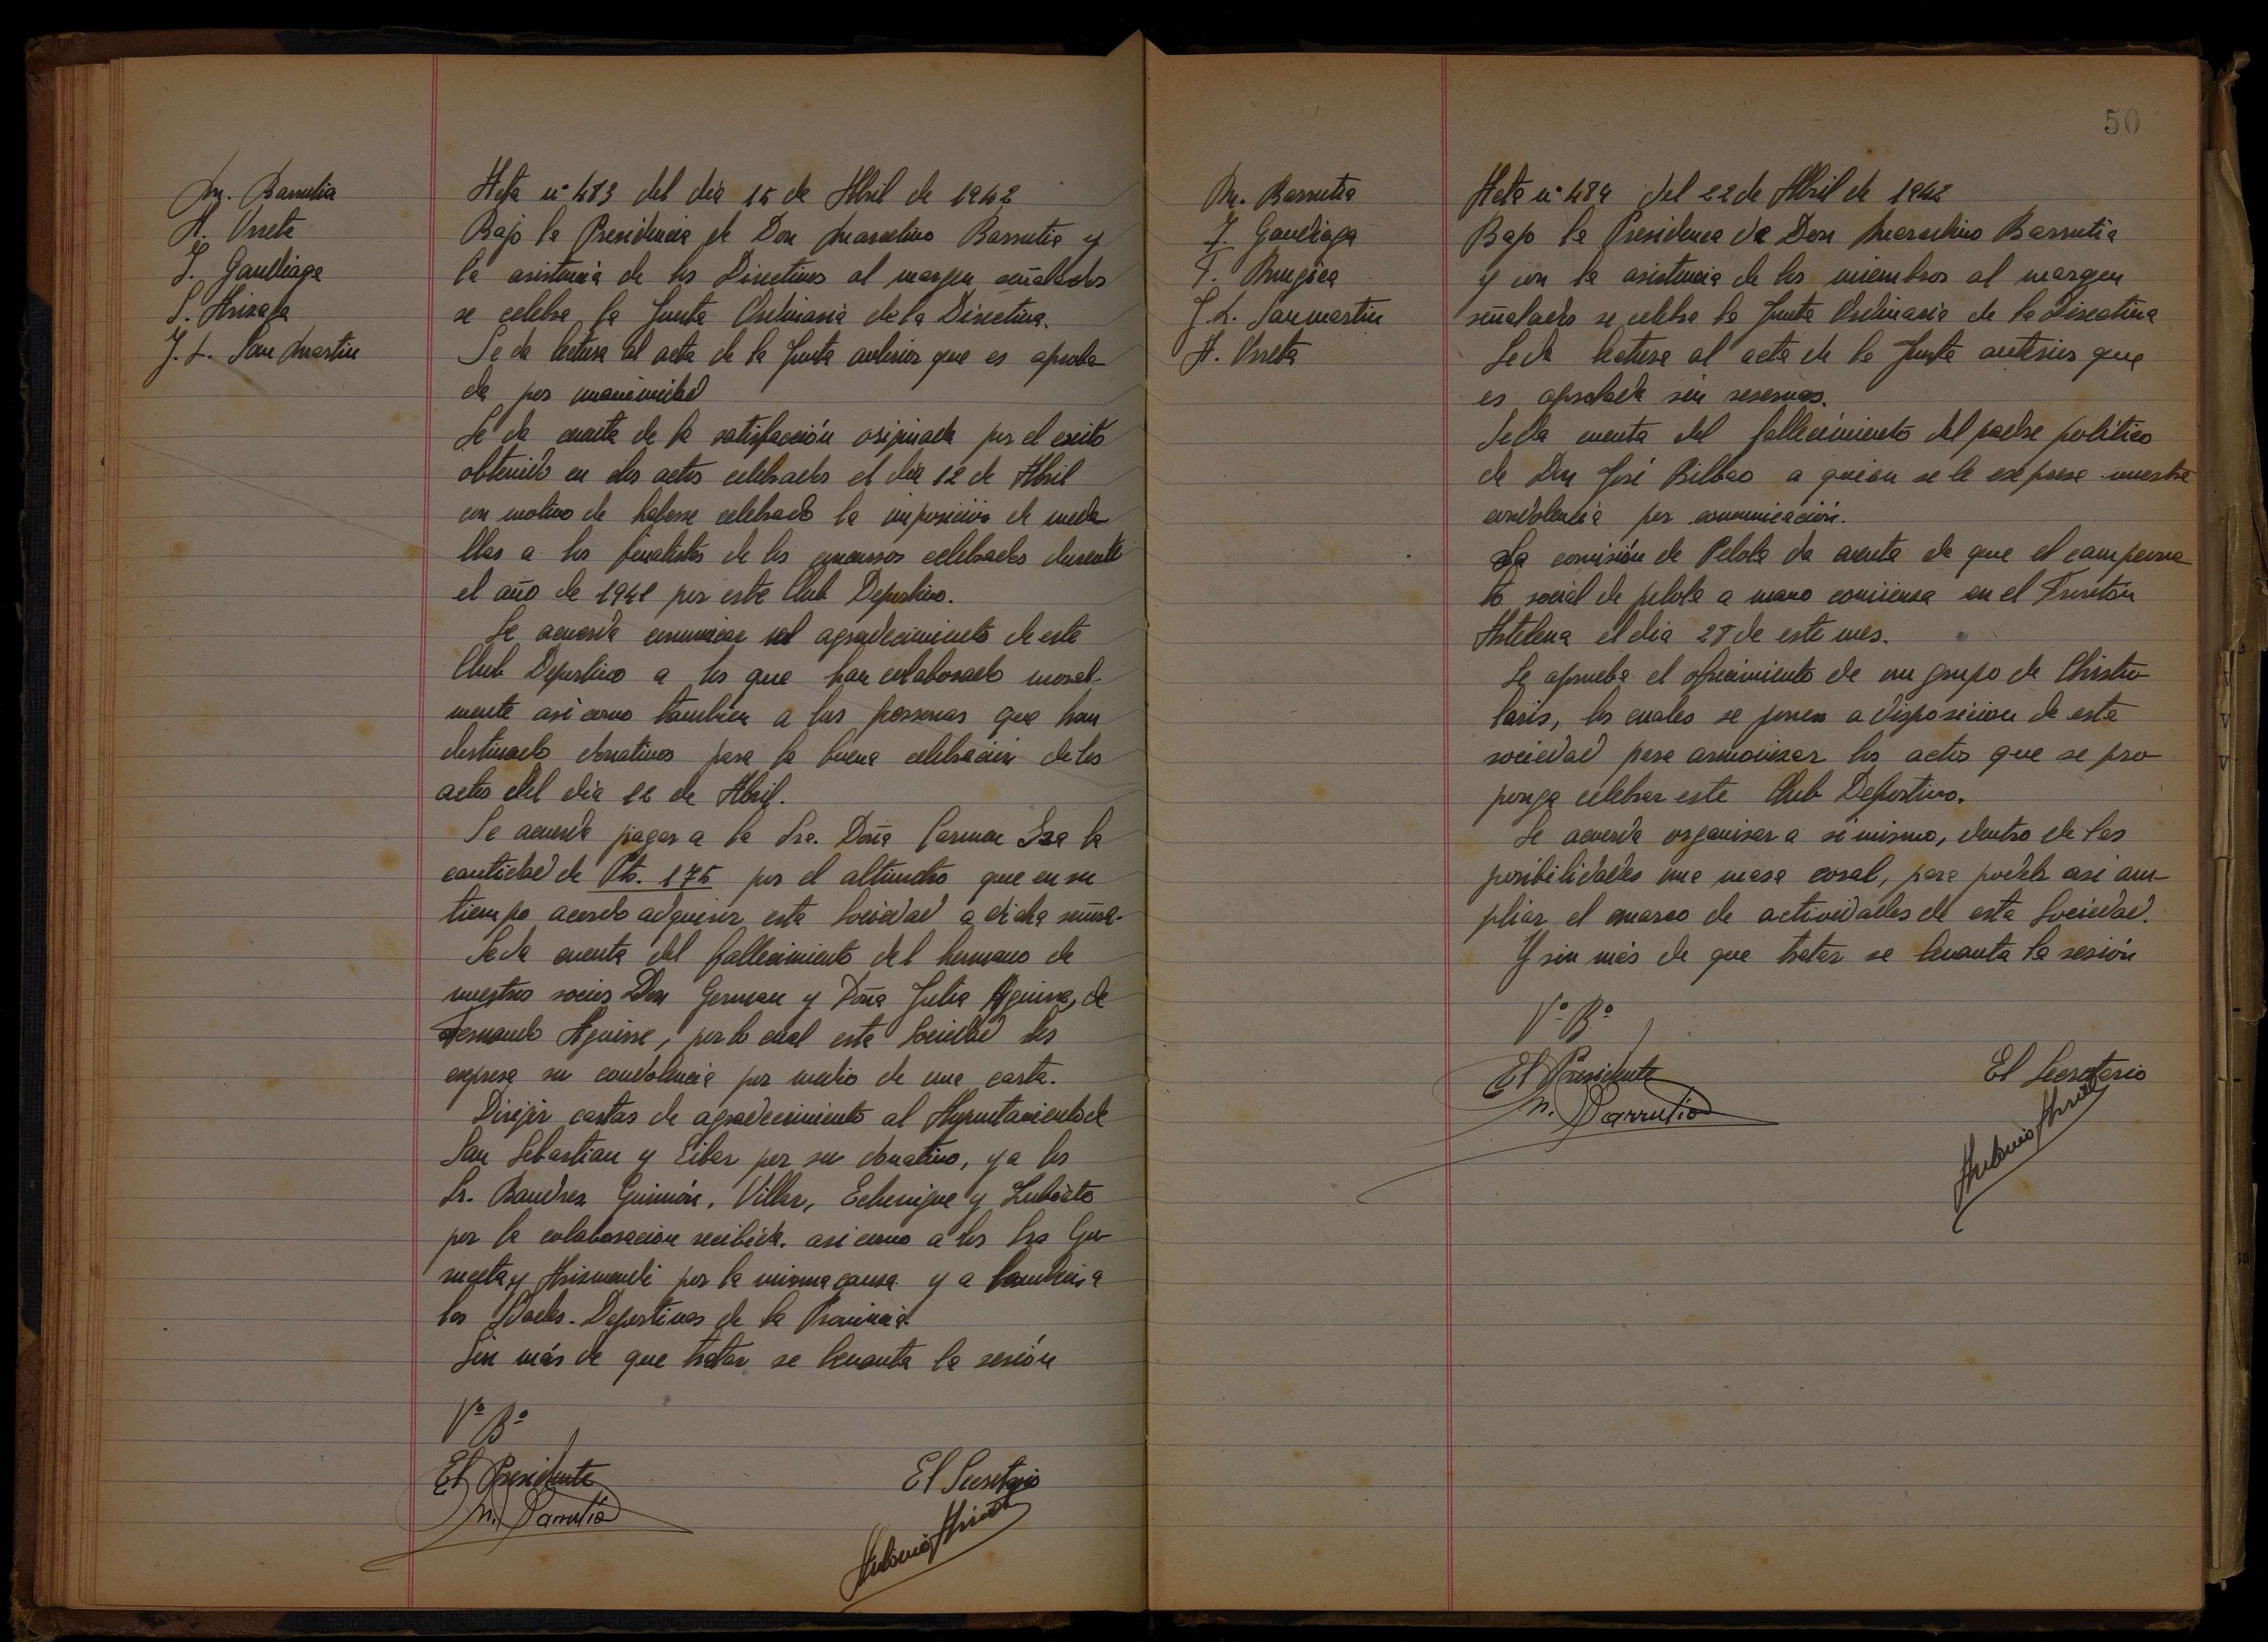 M. Barrutia
A. Urreta
J. Gandiaga
S. Arizaga
J. L. San Martin
Acta nº 483 del dia 15 de Abril de 1942
Bajo la Presidencia de Don Marcelino Barrutia y
la asistencia de los Directivos al margen señalados
se celebra la Junta Ordinaria de la Directiva.
Se da lectura al acta de la Junta anterior que es aproba
da por unanimidad
Se da cuenta de la satisfacción originada por el exito
obtenido en los actos celebrados el dia 12 de Abril
con motivo de haberse celebrado la imposición de meda
llas a los finalistas de los concursos celebrados durante
el año de 1941 por este Club Deportivo.
Se acuerda comunicar el agradecimiento de este
Club Deportivo a los que han colaborado moral-
mente asi como tambien a las personas que han
destinado donativos para la buena celebración de los
actos del dia 12 de Abril.
Se acuerda pagar a la Sra. Doña Carmen Iza la
cantidad de Pts. 175 por el que en su
tiempo acordo adquirir esta Sociedad a dicha señora.
Se da cuenta del fallecimiento del hermano de
nuestros socios Don German y Doña Julia Aguirre, de
Fernando Aguirre, por lo cual esta Sociedad les
expresa su condolencia por medio de una carta.
Dirijir cartas de agradecimiento al Ayuntamiento de
San Sebastian y Eibar por su donativo, y a los
Sr. Bandres Guimón, Villar, Echenique y
por la colaboracion recibida. asi como a los Sres Gu
ruceta y Arizmendi por la misma causa y a tambien a
los Deportivos de la Provincia
Sin más de que tratar se levanta la sesión
Vº Bº
El Presidente
M. Barrutia
El Secretario
Antonio
50
M. Barrutia
J. Gandiaga
F. Mugica
J. L. Sanmartin
A. Urreta
Acta nº 484 del 22 de Abril de 1942
Bajo la Presidencia de Don Marcelino Barrutia
y con la asistencia de los miembros al margen
señalados se celebra la Junta Ordinaria de la Directiva
Se da lectura al acta de la Junta anterior que
es aprobada sin reservas.
Se da cuenta del fallecimiento del padre politico
de Don José Bilbao a quien se le expresa nuestra
condolencia por comunicación.
La comisión de Pelota da cuenta de que el campeona
to social de pelota a mano comienza en el Frontón
Astelena el dia 28 de este mes.
Se aprueba el ofrecimiento de un grupo de Chistu
laris, los cuales se ponen a disposicion de esta
sociedad para armonizar los actos que se pro
ponga celebrar este Club Deportivo.
Se acuerda organizar a si mismo, dentro de las
posibilidades una masa coral, para poder asi am-
pliar el marco de actividades de esta Sociedad.
Y sin más de que tratar se levanta la sesión
Vº Bº
El Presidente
M. Barrutia
El Secretario
Antonio